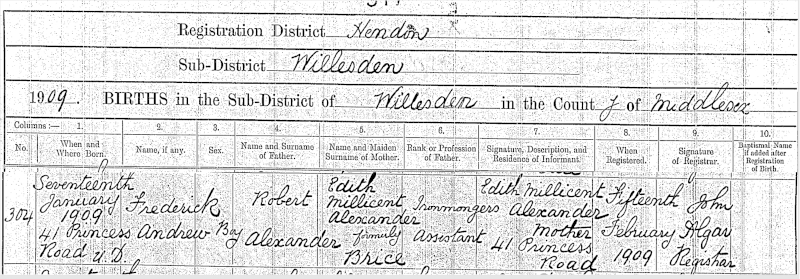 Registration District Hendon
Sub-District Willesden
1909. BIRTHS in the Sub-District of Willesden in the County of Middlesex
Columns :— 1. 2. 3. 4. 5. 6. 7. 8. 9. 10.
No. When and Where Born. Name, if any. Sex. Name and Surname of Father. Name and Maiden Surname of Mother. Rank or Profession of Father. Signature, Description, and Residence of Informant. When Registered. Signature of Registrar. Baptismal Name if added after Registration of Birth.
304 Seventeenth January 1909 41 Princess Road U.D. Frederick Andrew Boy Robert Alexander Edith Millicent Alexander formerly Brice Ironmongers Assistant Edith Millicent Alexander Mother 41 Princess Road Fifteenth February 1909 John Algar Registrar